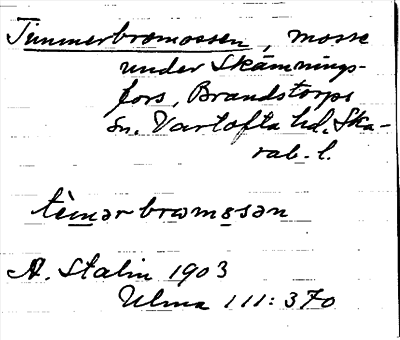 Timmerbromossen, mosse
under Skämnings-
fors, Brandstorps
sn. Vartofta hd. Ska-
rab. l.
tìmərbrωmosən
A. Stalin 1903
Ulma 111:370